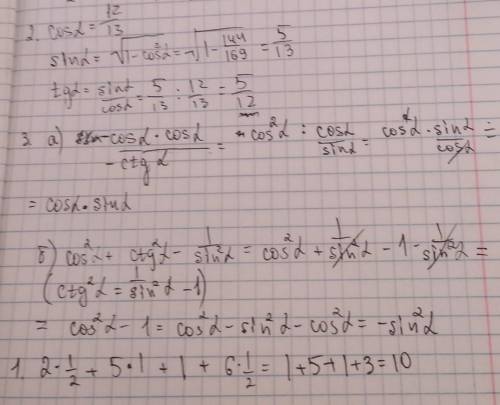 2. cosα = 12/13
sinα = √(1-cos²α) = √(1-144/169) = 5/13
tgα = sinα/cosα = 5/13 : 12/13 = 5/12
3. a) (-cosα · cosα)/(-ctgα) = cos²α : cosα/sinα = (cos²α · sinα)/cosα =
= cosα · sinα
б) cos²α + ctg²α - 1/sin²α = cos²α + 1/sin²α - 1 - 1/sin²α =
(ctg²α = 1/sin²α - 1)
= cos²α - 1 = cos²α - sin²α - cos²α = -sin²α
1. 2·1/2 + 5·1 + 1 + 6·1/2 = 1+5+1+3=10